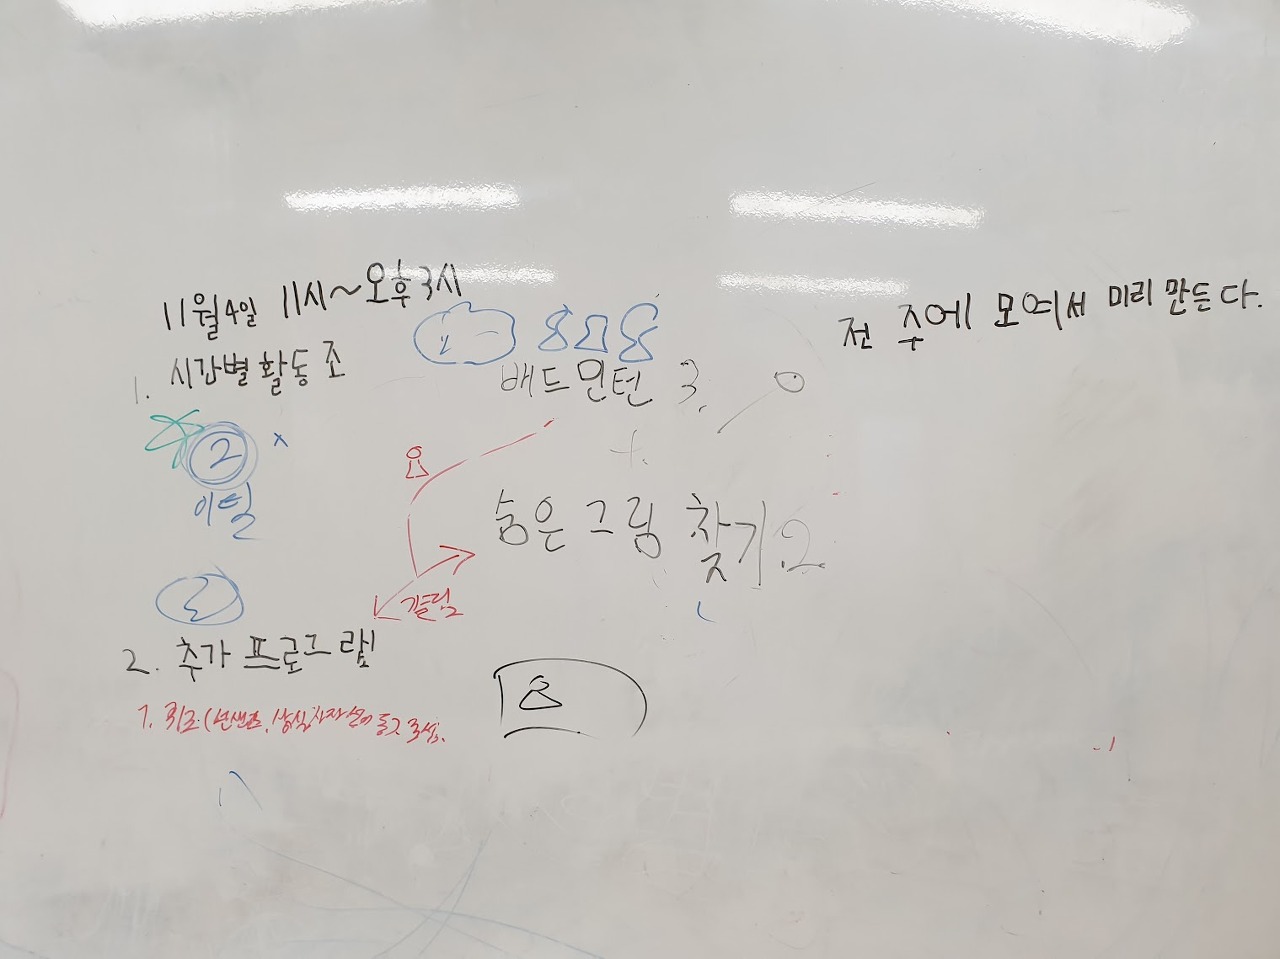 11월 4일 11시~오후 3시
1. 시간별 활동 조
2
이틸
2. 추가 프로그램
1. 퀴즈(
배드민턴 3.
+
숨은 그림 찾기 2
갤럼
전 주에 모여서 미리 만든다.